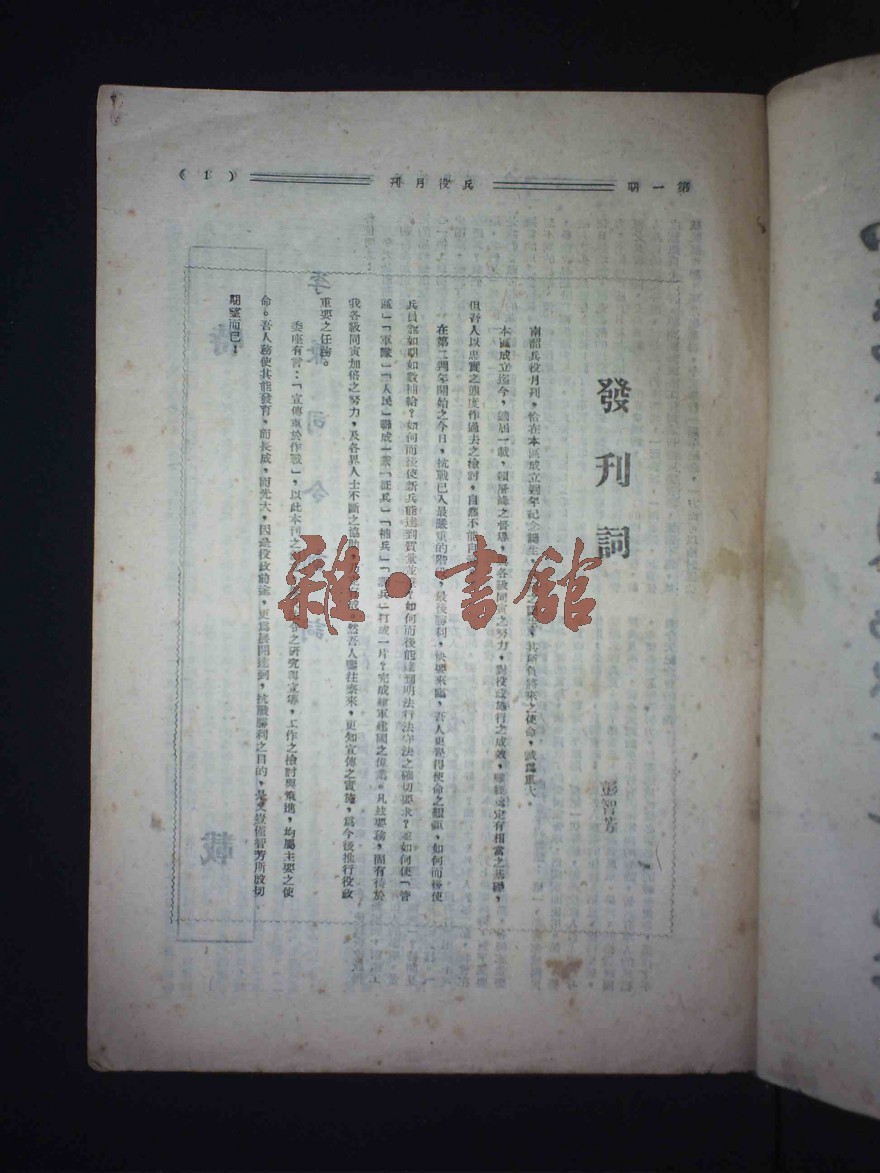 第一期
兵役月刊
（1）
發刊詞
彭智芳
南韶兵役月刊，恰在本區成立週年紀念誕生，其所負將來之使命，誠為重大，
本區成立迄今，瞬屆一載，賴層峰之督導，各級同寅之努力，對役政推行之成效，雖經奠定有相當之基礎，
但吾人以忠實之態度作過去之檢討，自應不能自
在第二週年開始之今日，抗戰已入最嚴重的階段，最後勝利，快要來臨，吾人更覺得使命之艱鉅，如何而後使
兵員能如期如數補給？如何而後使新兵能達到質量並？如何而後能達到明法行法守法之確切要求？並如何使「管
區」「軍隊」「人民」聯成一素「征兵」「補兵」「練兵」打成一片？完成建軍建國之偉業。凡茲要務，固有待於
我各級同寅加倍之努力，及各界人士不斷之協助，然吾人鑒往察來，更知宣傳之實施，為今後推行役政
重要之任務。
委座有言：「宣傳重於作戰」，以此本刊之之研究與宣導，工作之檢討與策進，均屬主要之使
命。吾人務使其能發育，而長成，而光大，因是役政前途，更為展開達到，抗戰勝利之目的，是又豈僅智芳所殷切
期望而已！
雜·書館